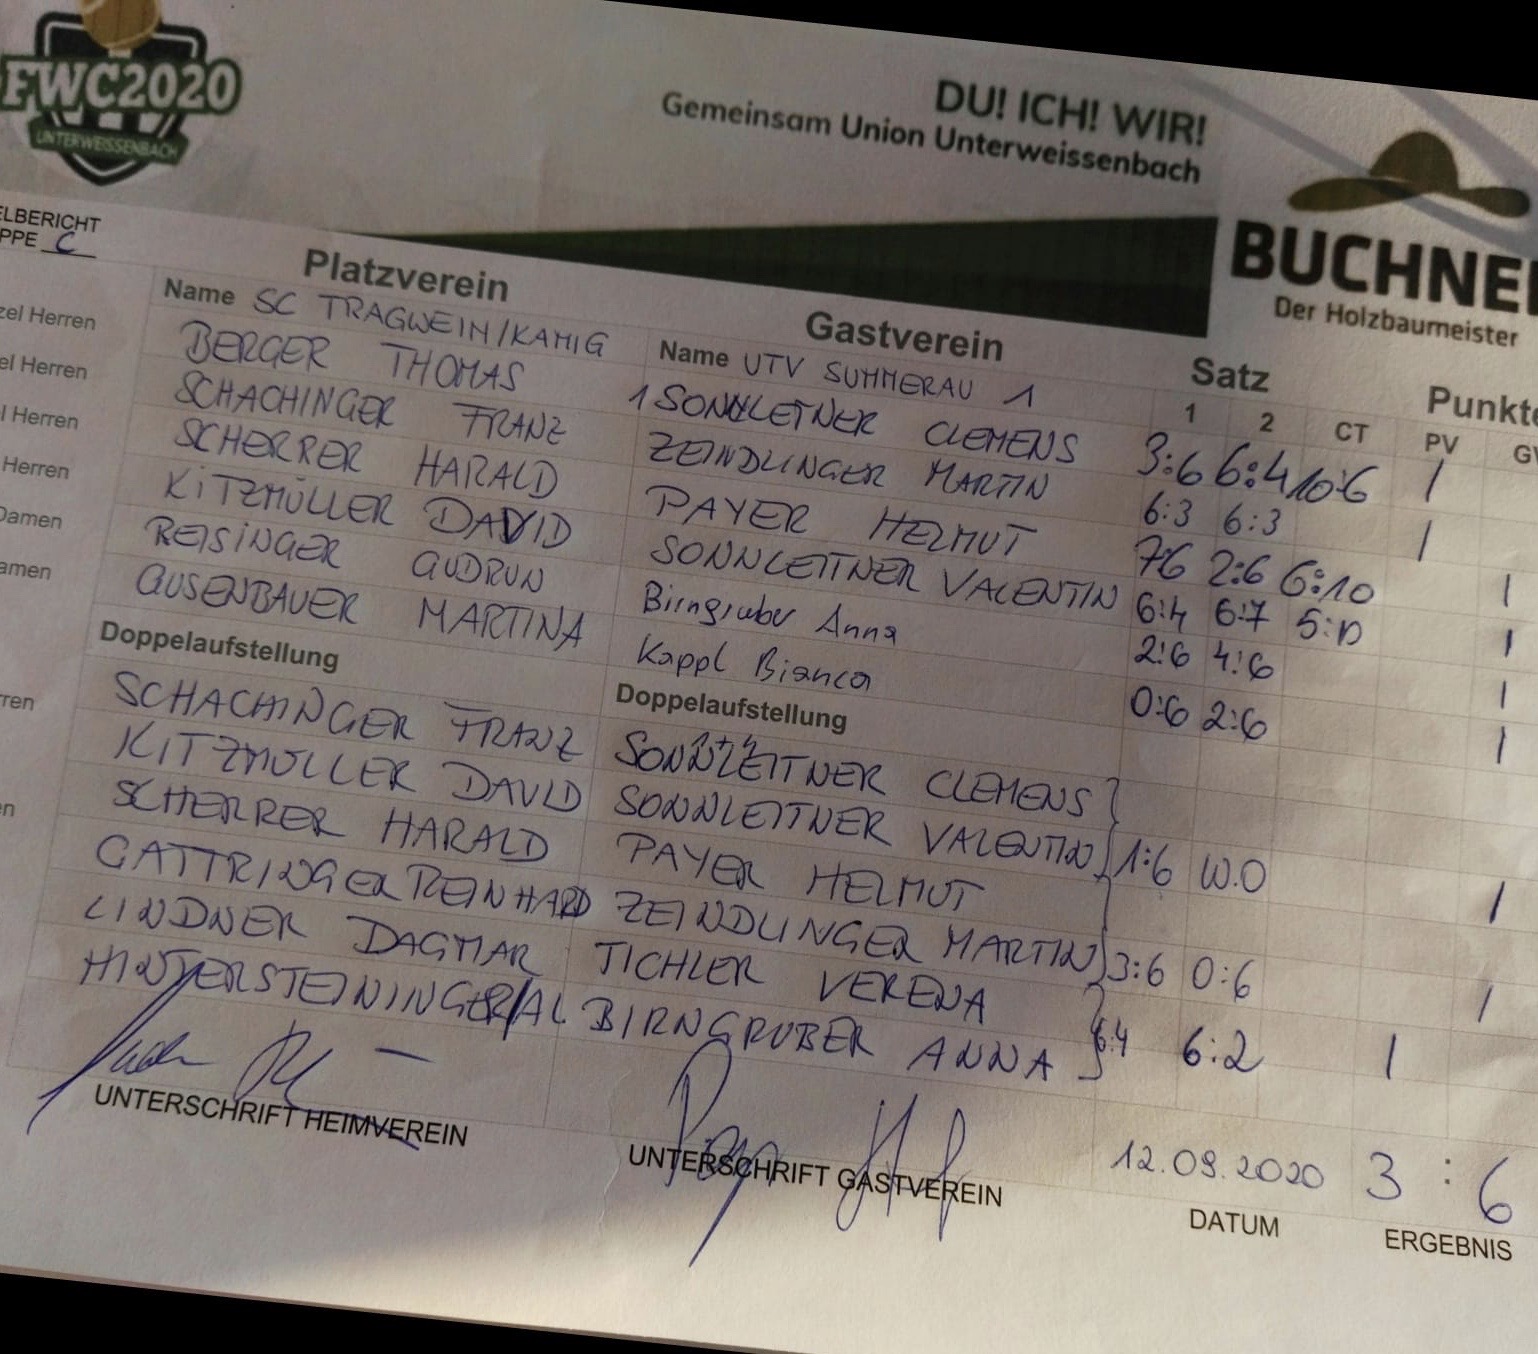 FWC2020
UNTERWEISSENBACH
DU! ICH! WIR!
Gemeinsam Union Unterweissenbach
BUCHNE
Der Holzbaumeister
ELBERICHT
PPE C
Platzverein Gastverein Satz Punkte
Name SC TRAGWEIN/KAMIG Name UTV SUMMERAU 1 1 2 CT PV GV
zel Herren BERGER THOMAS 1 SONNLEITNER CLEMENS 3:6 6:4 10:6 1
el Herren SCHACHINGER FRANZ ZEINDLINGER MARTIN 6:3 6:3 1
l Herren SCHERRER HARALD PAYER HELMUT 76 2:6 6:10 1
Herren KITZMÜLLER DAVID SONNLEITNER VALENTIN 6:4 6:7 5:10 1
Damen REISINGER GUDRUN Birngruber Anna 2:6 4:6 1
amen GUSENBAUER MARTINA Kappl Bianca 0:6 2:6 1
Doppelaufstellung Doppelaufstellung
rren SCHACHINGER FRANZ SONNLEITNER CLEMENS
KITZMÜLLER DAVID SONNLEITNER VALENTIN 1:6 W.O 1
en SCHERRER HARALD PAYER HELMUT
GATTRINGER REINHARD ZEINDLINGER MARTIN 3:6 0:6 1
LINDNER DAGMAR TICHLER VERENA
HINTERSTEININGER AL BIRNGRUBER ANNA 6:4 6:2 1
UNTERSCHRIFT HEIMVEREIN UNTERSCHRIFT GASTVEREIN
12.09.2020 3 : 6
DATUM ERGEBNIS